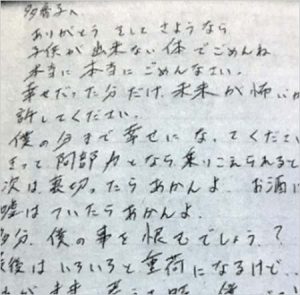 多香子へ
ありがとう そして さようなら
子供が出来ない体でごめんね
本当に本当にごめんなさい。
幸せだった分だけ、未来が怖いか
許してください。
僕の分まで幸せになってくださ
きっと阿部力となら乗りこえられると
次は裏切ったらあかんよ、お酒に
嘘はついたらあかんよ。
多分、僕の事を恨むでしょう、?
後はいろいろと重荷になるけど、、